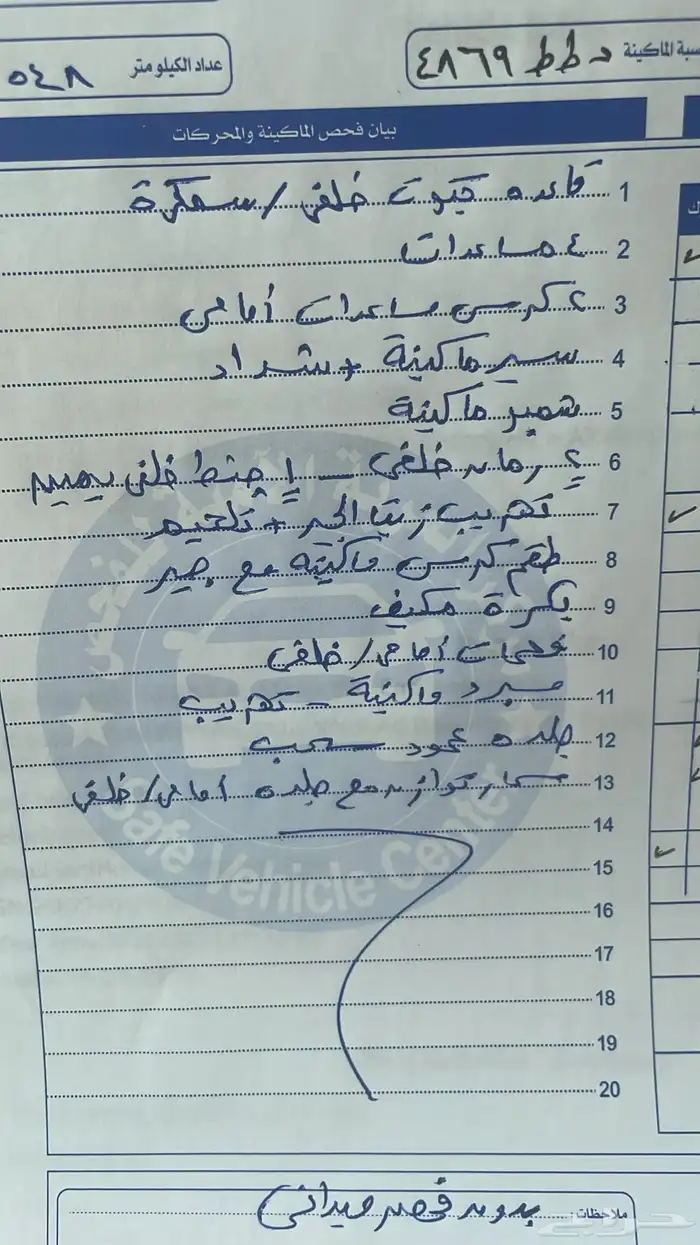 سبة الماكينة د ط ط ٤٨٦٩
عداد الكيلو متر ٥٤٨
بيان فحص الماكينة والمحركات
1 قاعده جيوت خلفي / سمكرة
2 ٤ مساعدات
3 ٢ كرسي مساعدات أمامي
4 سير ماكينة + شداد
5 شمبر ماكينة
6 ٢ رمان خلفي - ١ جنط خلفي يمين
7 تهريب زيت الجير + تلحيم
8 طقم كرسي ماكينة مع جير
9 بكرة مكيف
10 فحمات أمامي / خلفي
11 مبرد ماكينة - تهريب
12 جلده عمود سحب
13 مسمار توازن مع جلده أمامي / خلفي
14
15
16
17
18
19
20
Safe Vehicle Center
ملاحظات: بدون فحص ميداني
حراج